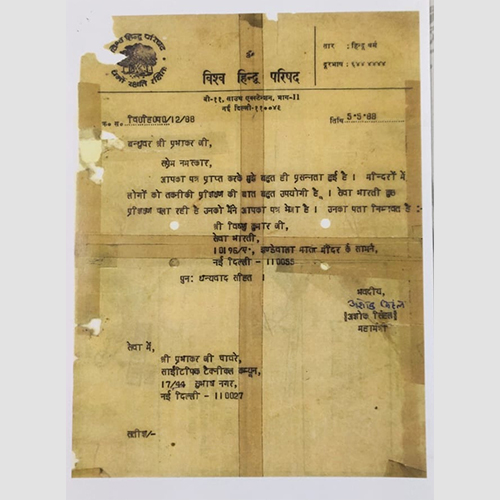 विश्व हिन्दू परिषद
धर्मो रक्षति रक्षितः
तार : हिन्दू धर्म
दूरभाष : ६४४ ४४४४
विश्व हिन्दू परिषद
बी-११, साउथ एक्सटेन्शन, भाग-II
नई दिल्ली-११००४९
क्र. सं. /12/88
तिथि 5.5.88
बन्धुवर श्री प्रभाकर जी,
सप्रेम नमस्कार,
आपका पत्र प्राप्त करके मुझे बहुत ही प्रसन्नता हुई है । मन्दिरों में
लोगों को तकनीकी प्रशिक्षण की बात बहुत उपयोगी है । सेवा भारती कुछ
प्रशिक्षण चला रही है उनको मैंने आपका पत्र भेजा है । उनका पता निम्नवत है :-
श्री विष्णु कुमार जी,
सेवा भारती,
10196/ए, झण्डेवाला माता मंदिर के सामने,
नई दिल्ली - 110055
पुनः धन्यवाद सहित ।
भवदीय,
अशोक सिंहल
[अशोक सिंहल]
महामंत्री
सेवा में,
श्री प्रभाकर जी
साइंटीफिक टैक्नीकल
17/44 सुभाष नगर,
नई दिल्ली - 110027
सतीश/-